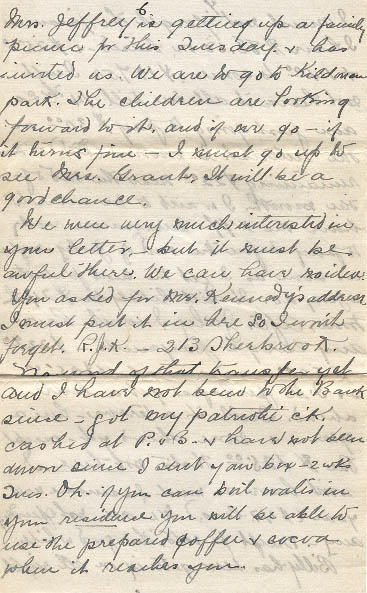 6.
Mrs. Jeffrey is getting up a family
picnic for this Tuesday & has
invited us. We are to go to Kildonan
park. The children are looking
forward to it, and if we go - if
it turns fine - I must go up to
see Mrs. Grant. It will be a
good chance.
We were very much interested in
your letter, - but it must be
awful there. We can have no idea.
You asked for Mr. Kennedy's address
I must put it in here so I won't
forget. R.J.K. - 213 Sherbrook.
No word of that transfer yet
and I have not been to the Bank
since - got my patriotic ck.
cashed at P. & B. & have not been
down since I sent your box - 2 wks
Tues. Oh. if you can boil water in
your residence you will be able to
use the prepared coffee & cocoa
when it reaches you.